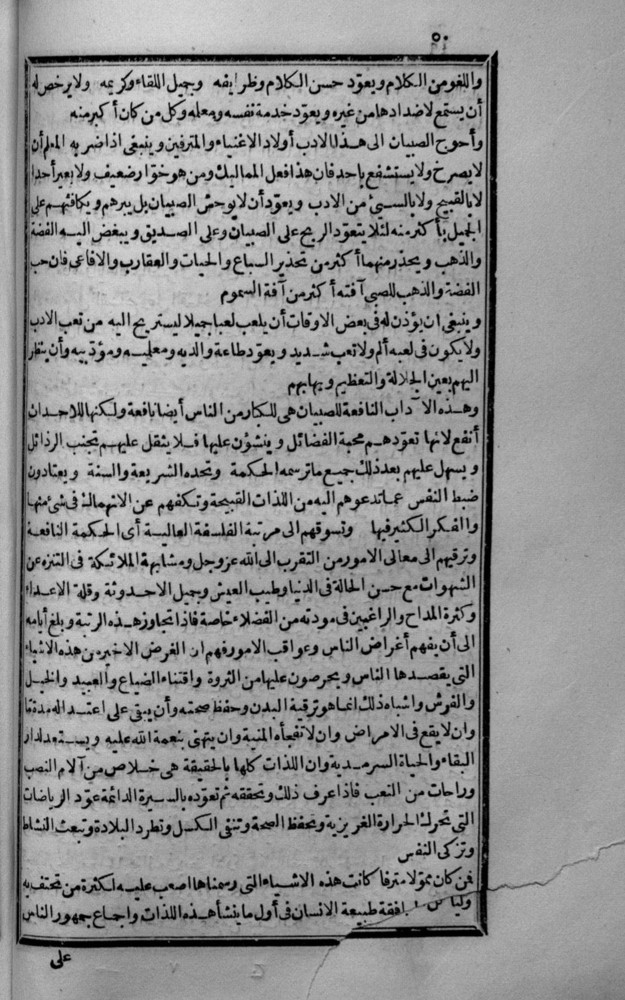 ٥٠
واللغو من الكلام ويعوّد حسن الكلام وظرايفه وجميل اللقاء وكريمه ولا يرخص له
أن يستمع لاضدادها من غيره ويعوّد خدمة نفسه ومعلمه وكل من كان أكبر منه
وأحوج الصبيان الى هذا الادب أولاد الاغنياء والمترفين وينبغى اذا ضربه المعلم أن
لا يصرخ ولا يستشفع باحد فان هذا فعل المماليك ومن هو خوّار ضعيف ولا يعير أحدا
لا بالقبيح ولا بالسيئ من الادب ويعوّد أن لا يوحش الصبيان بل يبرهم ويكافئهم على
الجميل بأكثر منه لئلا يتعوّد الربح على الصبيان وعلى الصديق ويبغض اليه الفضة
والذهب ويحذر منهما أكثر من تحذير السباع والحيات والعقارب والافاعى فان حب
الفضة والذهب للصبى آفته أكثر من آفة السموم
وينبغى ان يؤذن له فى بعض الاوقات أن يلعب لعبا جميلا ليستريح اليه من تعب الادب
ولا يكون فى لعبه ألم ولا تعب شديد ويعوّد طاعة والديه ومعلميه ومؤدّبيه وأن ينظر
اليهم بعين الجلالة والتعظيم ويهابهم
وهذه الآداب النافعة للصبيان هى للكبار من الناس أيضا نافعة ولكنها للاحداث
أنفع لانها تعوّدهم محبة الفضائل وينشؤن عليها فلا يثقل عليهم تجنب الرذائل
ويسهل عليهم بعد ذلك جميع ما ترسمه الحكمة وتحده الشريعة والسنة ويعتادون
ضبط النفس عما تدعوهم اليه من اللذات القبيحة وتكفهم عن الانهماك فى شئ منها
والفكر الكثير فيها وتسوقهم الى مرتبة الفلسفة العالية أى الحكمة النافعة
وترقيهم الى معالى الامور من التقرب الى الله عز وجل ومشابهة الملائكة فى التنزه عن
الشهوات مع حسن الحالة فى الدنيا وطيب العيش وجميل الاحدوثة وقلة الاعداء
وكثرة المداح والراغبين فى مودته من الفضلاء خاصة فاذا تجاوز هذه الرتبة وبلغ أيامه
الى أن يفهم أغراض الناس وعواقب الامور فهم ان الغرض الاخير من هذه الاشياء
التى يقصدها الناس ويحرصون عليها من الثروة واقتناء الضياع والعبيد والخيل
والفرش واشباه ذلك انما هو ترقية البدن وحفظ صحته وأن يبقى على اعتداله مدّة ما
وان لا يقع فى الامراض وان لا تفجأه المنية وان يتهنى بنعمة الله عليه ويستعد لدار
البقاء والحياة السرمدية وان اللذات كلها بالحقيقة هى خلاص من آلام النصب
وراحات من التعب فاذا عرف ذلك وتحققه ثم تعوّده بالسيرة الدائمة عوّد الرياضات
التى تحرك الحرارة الغريزية وتحفظ الصحة وتنفى الكسل وتطرد البلادة وتبعث النشاط
وتزكى النفس
فمن كان مموّلا مترفا كانت هذه الاشياء التى رسمناها اصعب عليه لكثرة من تحتف به
افقة طبيعة الانسان فى أول ما ينشأ هذه اللذات واجماع جمهور الناس
على